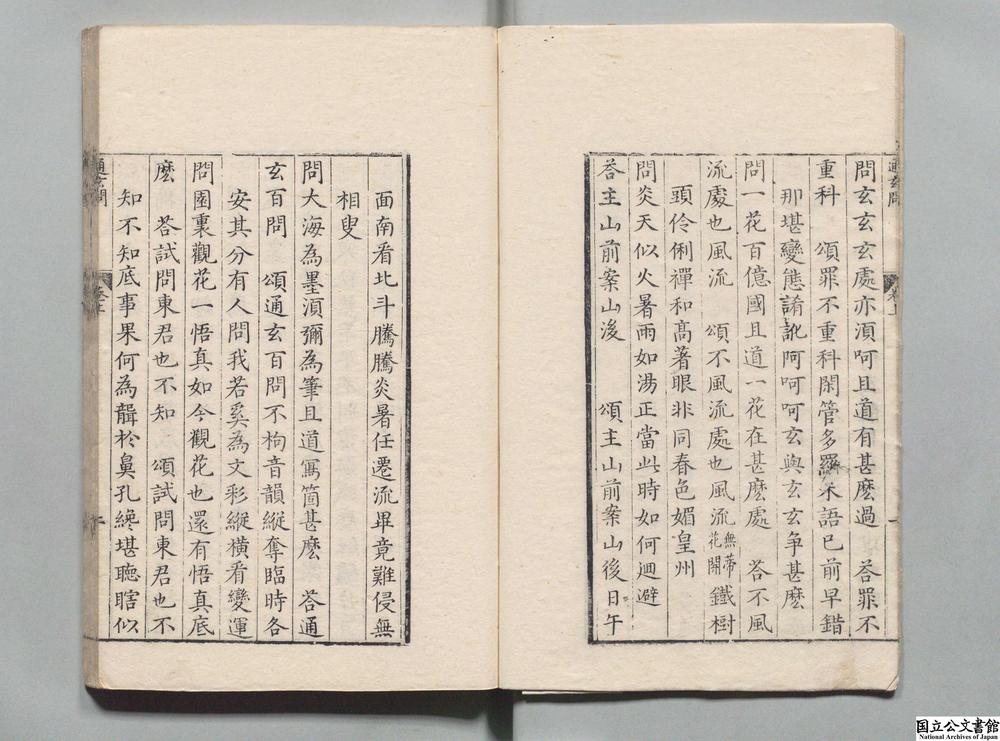 問玄玄玄處亦須呵且道有甚麽過　荅罪不
重科　頌罪不重科閑管多羅未語已前早錯
那堪變態誵訛呵呵呵玄與玄玄争甚麽
問一花百億國且道一花在甚麽處　荅不風
流處也風流　頌不風流處也風流無蒂花開鐵樹
頭伶俐禪和髙著眼非同春色媚皇州
問炎天似火暑雨如湯正當此時如何迴避
荅主山前案山後　頌主山前案山後日午
面南看北斗騰騰炎暑任遷流畢竟難侵無
相叟
問大海為墨須彌為筆且道寫箇甚麽　荅通
玄百問　頌通玄百問不拘音韻縱奪臨時各
安其分有人問我若奚為文彩縱横看變運
問園裏觀花一悟真如今觀花也還有悟真底
麽　荅試問東君也不知　頌試問東君也不
知不知底事果何為韻於鼻孔纔堪聽瞎似
通玄問
卷上
通玄問
卷上
国立公文書館
National Archives of Japan